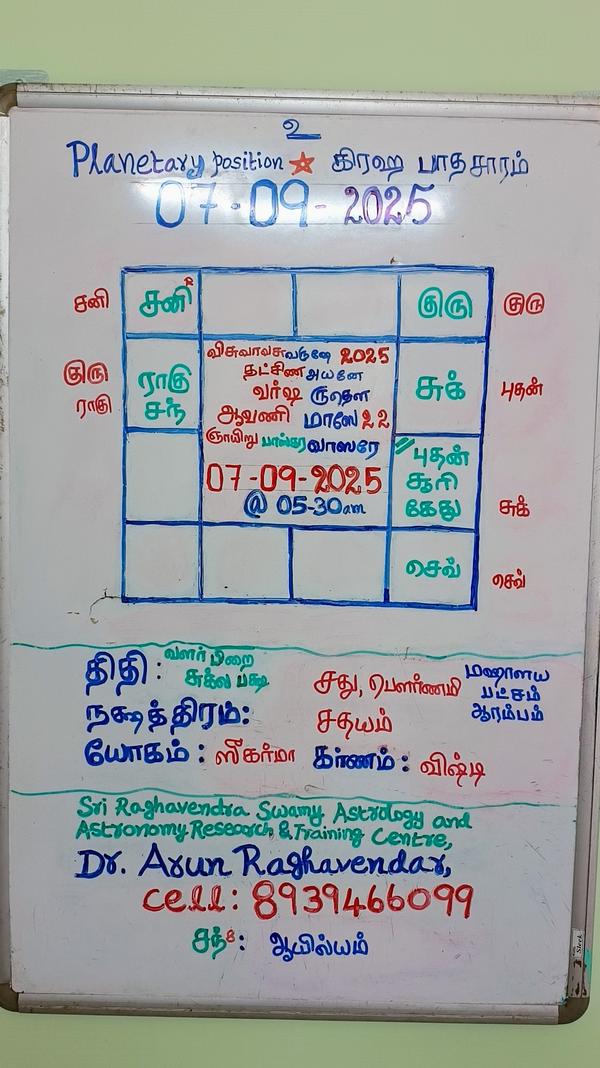 உ
Planetary position கிரஹ பாதசாரம்
07-09-2025
சனி
சனி R
குரு
குரு
குரு
ராகு
ராகு
சந்
விசுவாவசுவருஷே 2025
தட்சிண அயனே
வர்ஷ ருதௌ
ஆவணி மாஸே 22
ஞாயிறு பாஸ்கர வாஸரே
07-09-2025
@ 05-30am
சுக்
புதன்
புதன்
சூரி
கேது
சுக்
செவ்
செவ்
திதி : வளர் பிறை
சுக்ல பக்ஷ
சது, பௌர்ணமி
மஹாளய
பட்சம்
ஆரம்பம்
நக்ஷத்திரம்: சதயம்
யோகம் : ஸீகர்மா கர்ணம் : விஷ்டி
Sri Raghavendra Swamy Astrology and
Astronomy Research & Training Centre,
Dr. Arun Raghavendar,
cell: 8939466099
சந் : ஆயில்யம்